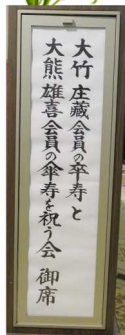 大竹 庄藏会員の卒寿と
大熊 雄喜会員の傘寿を祝う会 御席